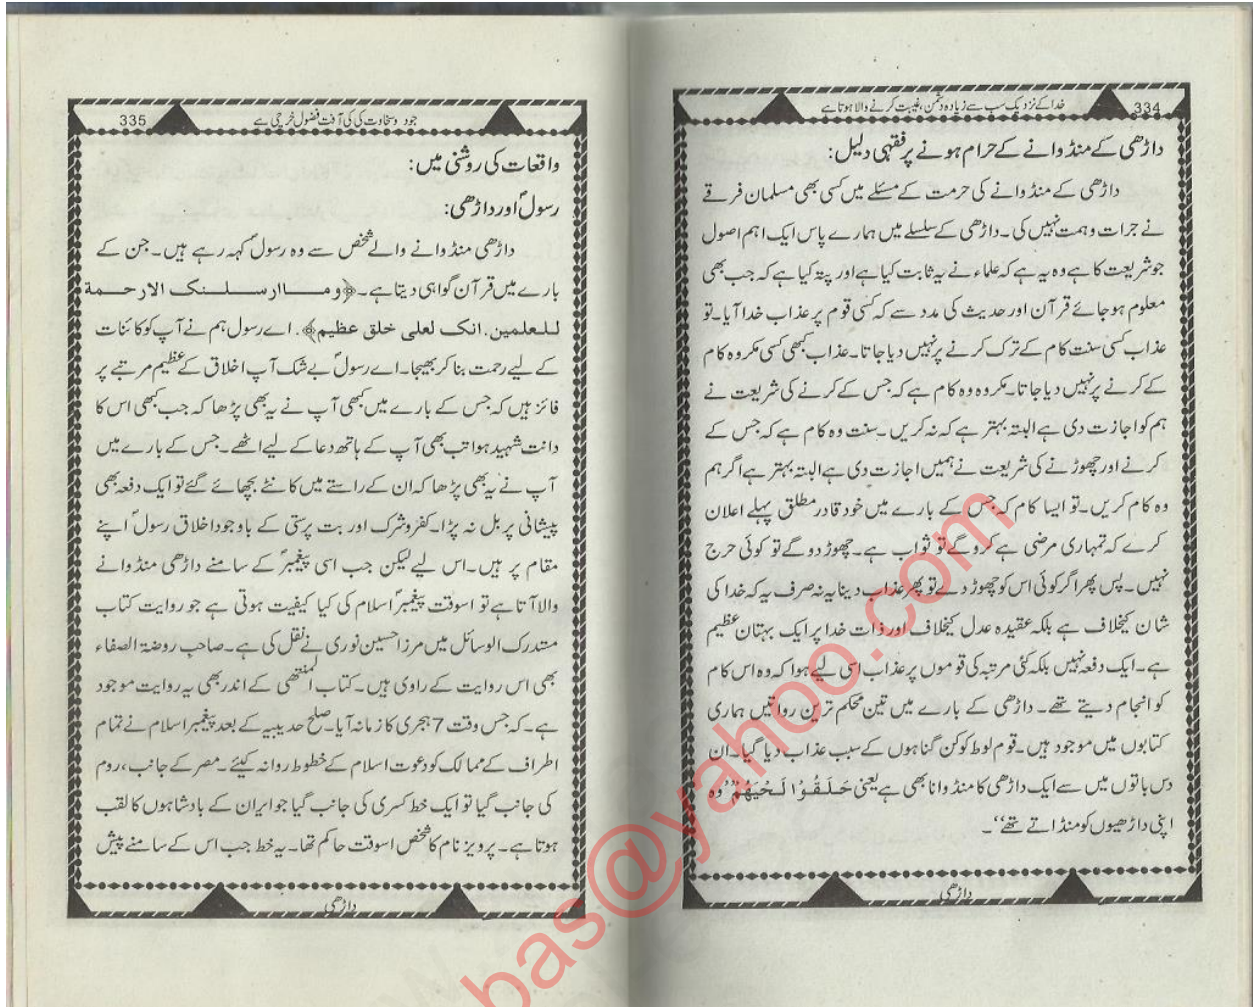 334
خدا کے نزدیک سب سے زیادہ دشمن، غیبت کرنے والا ہوتا ہے
داڑھی کے منڈوانے کے حرام ہونے پر فقہی دلیل:
داڑھی کے منڈوانے کی حرمت کے مسئلے میں کسی بھی مسلمان فرقے
نے جرات و ہمت نہیں کی۔ داڑھی کے سلسلے میں ہمارے پاس ایک اہم اصول
جو شریعت کا ہے وہ یہ ہے کہ علماء نے یہ ثابت کیا ہے اور پتہ کیا ہے کہ جب بھی
معلوم ہو جائے قرآن اور حدیث کی مدد سے کہ کسی قوم پر عذاب خدا آیا۔ تو
عذاب کسی سنت کام کے ترک کرنے پر نہیں دیا جاتا۔ عذاب کبھی کسی مکروہ کام
کے کرنے پر نہیں دیا جاتا۔ مکروہ وہ کام ہے کہ جس کے کرنے کی شریعت نے
ہم کو اجازت دی ہے البتہ بہتر ہے کہ نہ کریں۔ سنت وہ کام ہے کہ جس کے
کرنے اور چھوڑنے کی شریعت نے ہمیں اجازت دی ہے البتہ بہتر ہے اگر ہم
وہ کام کریں۔ تو ایسا کام کہ جس کے بارے میں خود قادر مطلق پہلے اعلان
کرے کہ تمہاری مرضی ہے کرو گے تو ثواب ہے۔ چھوڑ دو گے تو کوئی حرج
نہیں۔ پس پھر اگر کوئی اس کو چھوڑ دے تو پھر عذاب دینا یہ نہ صرف یہ کہ خدا کی
شان کیخلاف ہے بلکہ عقیدہ عدل کیخلاف اور ذات خدا پر ایک بہتان عظیم
ہے۔ ایک دفعہ نہیں بلکہ کئی مرتبہ کی قوموں پر عذاب اسی لیے ہوا کہ وہ اس کام
کو انجام دیتے تھے۔ داڑھی کے بارے میں تین محکم ترین روایتیں ہماری
کتابوں میں موجود ہیں۔ قوم لوط کو کن گناہوں کے سبب عذاب دیا گیا۔ ان
دس باتوں میں سے ایک داڑھی کا منڈوانا بھی ہے یعنی حَلَقُوْا لَحْيَهُمْ ''وہ
اپنی داڑھیوں کو منڈاتے تھے''۔
داڑھی
335
جود و سخاوت کی کی آفت فضول خرچی ہے
واقعات کی روشنی میں:
رسولؐ اور داڑھی:
داڑھی منڈوانے والے شخص سے وہ رسولؐ کہہ رہے ہیں۔ جن کے
بارے میں قرآن گواہی دیتا ہے۔ ﴿وما ارسلنک الا رحمة
للعلمین. انک لعلی خلق عظیم﴾. اے رسول ہم نے آپ کو کائنات
کے لیے رحمت بنا کر بھیجا۔ اے رسولؐ بے شک آپ اخلاق کے عظیم مرتبے پر
فائز ہیں کہ جس کے بارے میں کبھی آپ نے یہ بھی پڑھا کہ جب کبھی اس کا
دانت شہید ہوا تب بھی آپ کے ہاتھ دعا کے لیے اٹھے۔ جس کے بارے میں
آپ نے یہ بھی پڑھا کہ ان کے راستے میں کانٹے بچھائے گئے تو ایک دفعہ بھی
پیشانی پر بل نہ پڑا۔ کفر و شرک اور بت پرستی کے باوجود اخلاق رسولؐ اپنے
مقام پر ہیں۔ اس لیے لیکن جب اسی پیغمبرؐ کے سامنے داڑھی منڈوانے
والا آتا ہے تو اسوقت پیغمبرؐ اسلام کی کیا کیفیت ہوتی ہے جو روایت کتاب
مستدرک الوسائل میں مرزا حسین نوری نے نقل کی ہے۔ صاحب روضۃ الصفاء
بھی اس روایت کے راوی ہیں۔ کتاب المنتھی کے اندر بھی یہ روایت موجود
ہے۔ کہ جس وقت 7 ہجری کا زمانہ آیا۔ صلح حدیبیہ کے بعد پیغمبر اسلام نے تمام
اطراف کے ممالک کو دعوت اسلام کے خطوط روانہ کیئے۔ مصر کے جانب، روم
کی جانب گیا تو ایک خط کسری کی جانب گیا جو ایران کے بادشاہوں کا لقب
ہوتا ہے۔ پرویز نام کا شخص اسوقت حاکم تھا۔ یہ خط جب اس کے سامنے پیش
داڑھی
bas@yahoo.com